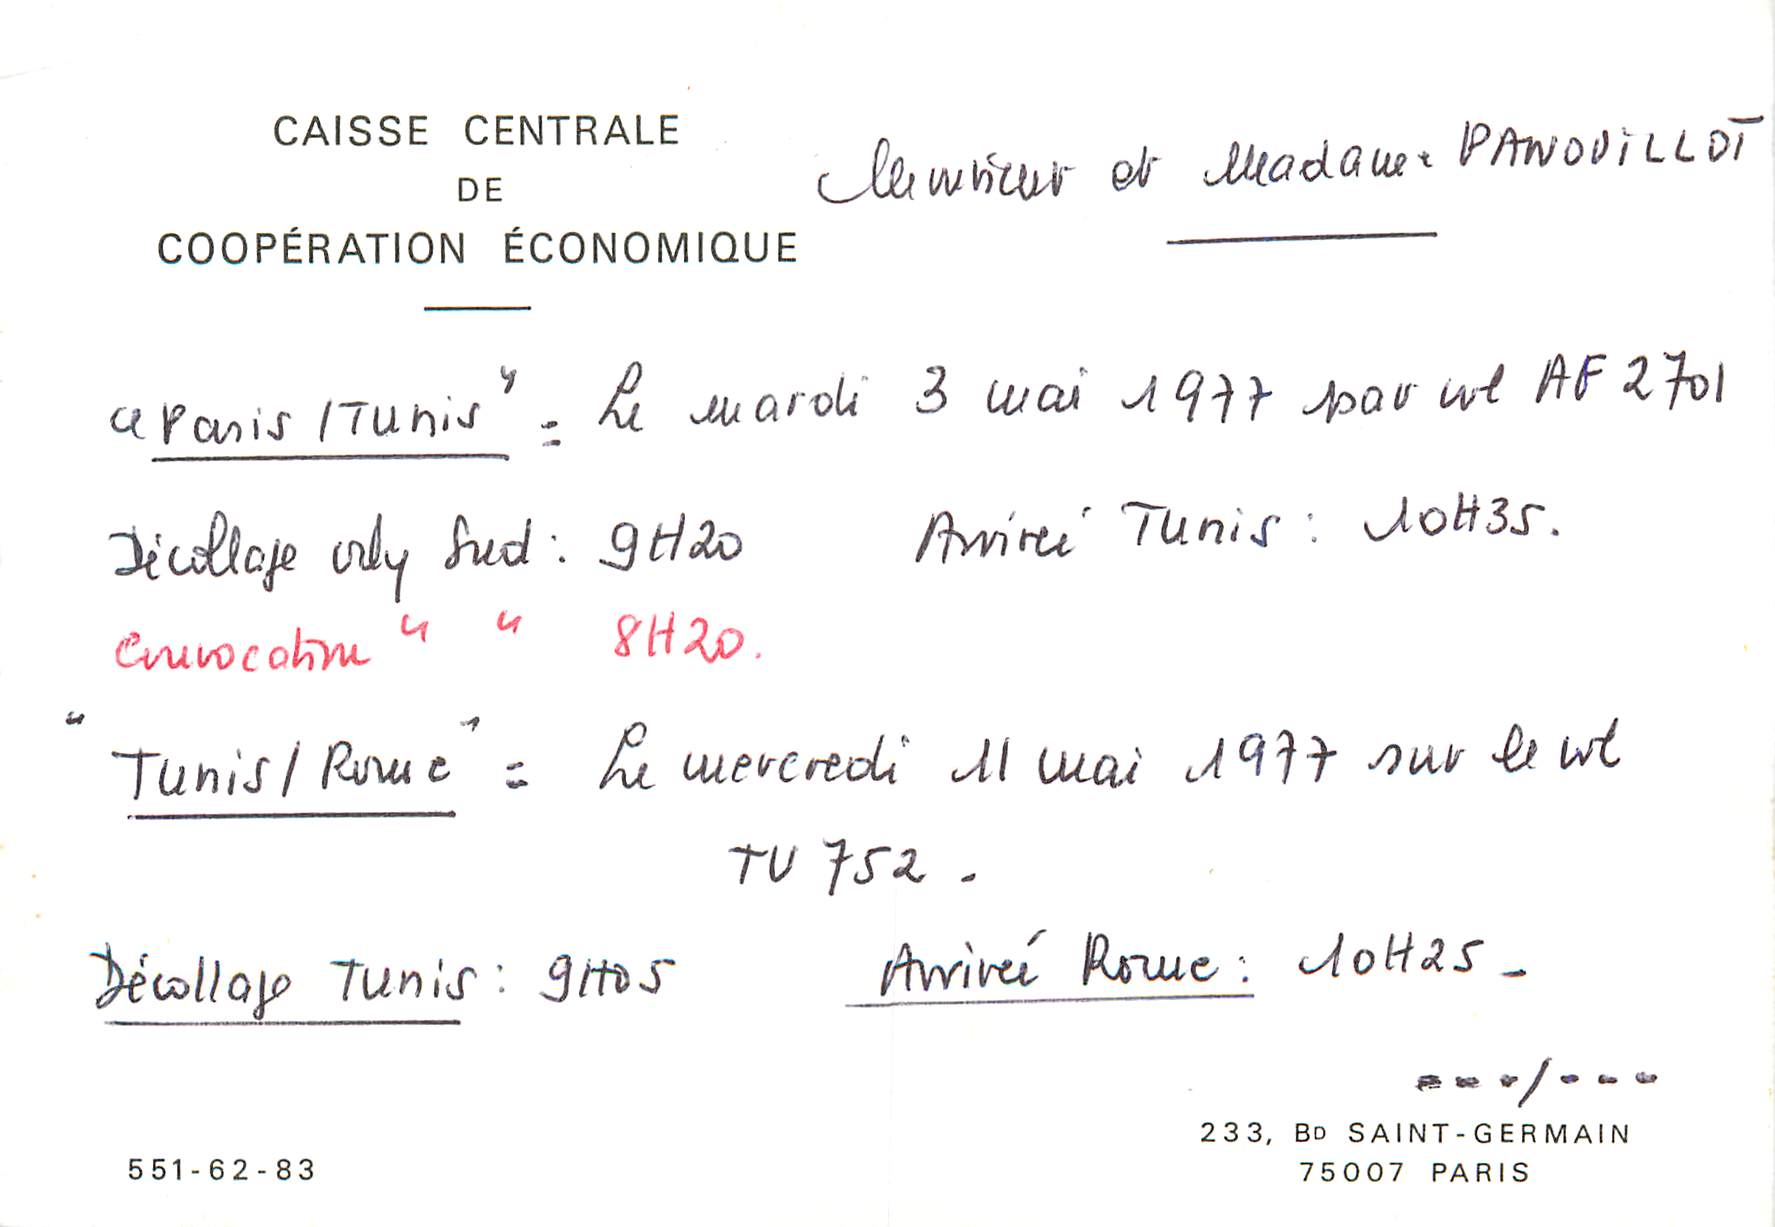 CAISSE CENTRALE
DE
COOPÉRATION ÉCONOMIQUE
Monsieur et Madame PANOUILLOT
"Paris/Tunis" = Le mardi 3 mai 1977 par vol AF 2701
Décollage Orly Sud : 9H20 Arrivée Tunis : 10H35.
Convocation " " 8H20.
"Tunis/Rome" = Le mercredi 11 mai 1977 sur le vol
TU 752 -
Décollage Tunis : 9H05 Arrivée Rome : 10H25 -
---/---
233, BD SAINT-GERMAIN
75007 PARIS
551-62-83